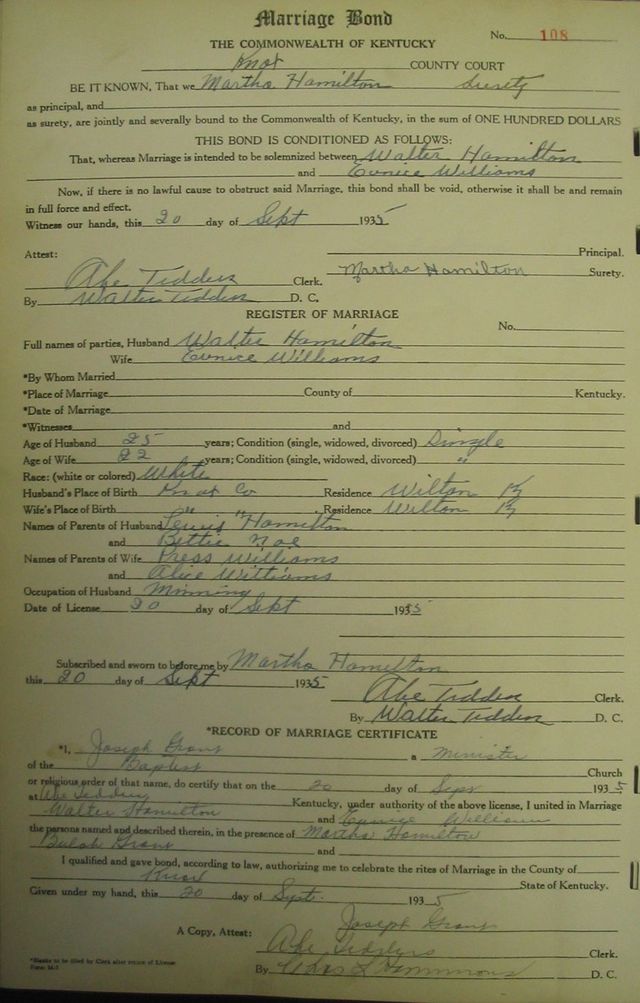 Marriage Bond
No. 108
THE COMMONWEALTH OF KENTUCKY
Knox COUNTY COURT
BE IT KNOWN, That we Martha Hamilton Surety
as principal, and
as surety, are jointly and severally bound to the Commonwealth of Kentucky, in the sum of ONE HUNDRED DOLLARS
THIS BOND IS CONDITIONED AS FOLLOWS:
That, whereas Marriage is intended to be solemnized between Walter Hamilton
and Eunice Williams
Now, if there is no lawful cause to obstruct said Marriage, this bond shall be void, otherwise it shall be and remain
in full force and effect.
Witness our hands, this 20 day of Sept 1935
Principal.
Attest:
Martha Hamilton Surety.
Abe Tedders Clerk.
By Walter Tedders D. C.
REGISTER OF MARRIAGE
No.
Full names of parties, Husband Walter Hamilton
Wife Eunice Williams
*By Whom Married
*Place of Marriage County of Kentucky.
*Date of Marriage
*Witnesses and
Age of Husband 25 years; Condition (single, widowed, divorced) Single
Age of Wife 22 years; Condition (single, widowed, divorced) "
Race: (white or colored) White
Husband's Place of Birth Knox Co Residence Wilton Ky
Wife's Place of Birth " " Residence Wilton Ky
Names of Parents of Husband Lewis Hamilton
and Bettie Noe
Names of Parents of Wife Press Williams
and Alice Williams
Occupation of Husband Minning
Date of License 20 day of Sept 1935
Subscribed and sworn to before me by Martha Hamilton
this 20 day of Sept 1935
Abe Tedders Clerk.
By Walter Tedders D. C.
*RECORD OF MARRIAGE CERTIFICATE
*I, Joseph Grant a Minister
of the Baptist Church
or religious order of that name, do certify that on the 20 day of Sept 1935
at Abe Tedders Kentucky, under authority of the above license, I united in Marriage
Walter Hamilton and Eunice Williams
the persons named and described therein, in the presence of Martha Hamilton
Bulah Grant and
I qualified and gave bond, according to law, authorizing me to celebrate the rites of Marriage in the County of
Knox State of Kentucky.
Given under my hand, this 20 day of Sept. 1935
Joseph Grant
A Copy, Attest: Abe Tedders Clerk.
*Blanks to be filled by Clerk after return of License
By Chas L Hammons D. C.